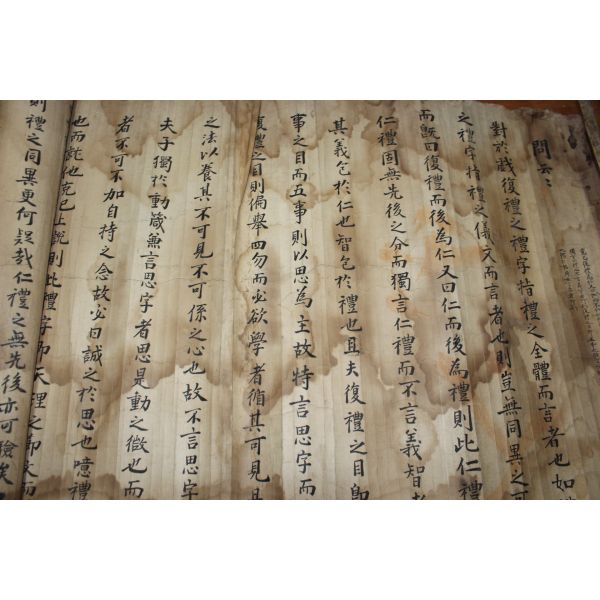 問云云
對於戱復禮之禮字特禮之全體而言者也如
之禮字特禮之儀文而言者也則豈無同異之可
而旣曰復禮而後為仁又曰仁而後為禮則此仁禮
仁禮固無先後之分而獨言仁禮而不言義智
其義包於仁也智包於禮也且夫復禮之目即
事之目而五事則以思為主故特言思字而
復禮之目則偏舉四勿而必欲學者循其可見
之法以養其不可見不可係之心也故不言思字
夫子獨於動箴兼言思字者思是動之微也而
者不可不加自持之念故必曰誠之於思也噫禮
也而訖也克已上說則此禮字即天理之節文而
則禮之同異更何疑哉仁禮之無先後亦可驗矣